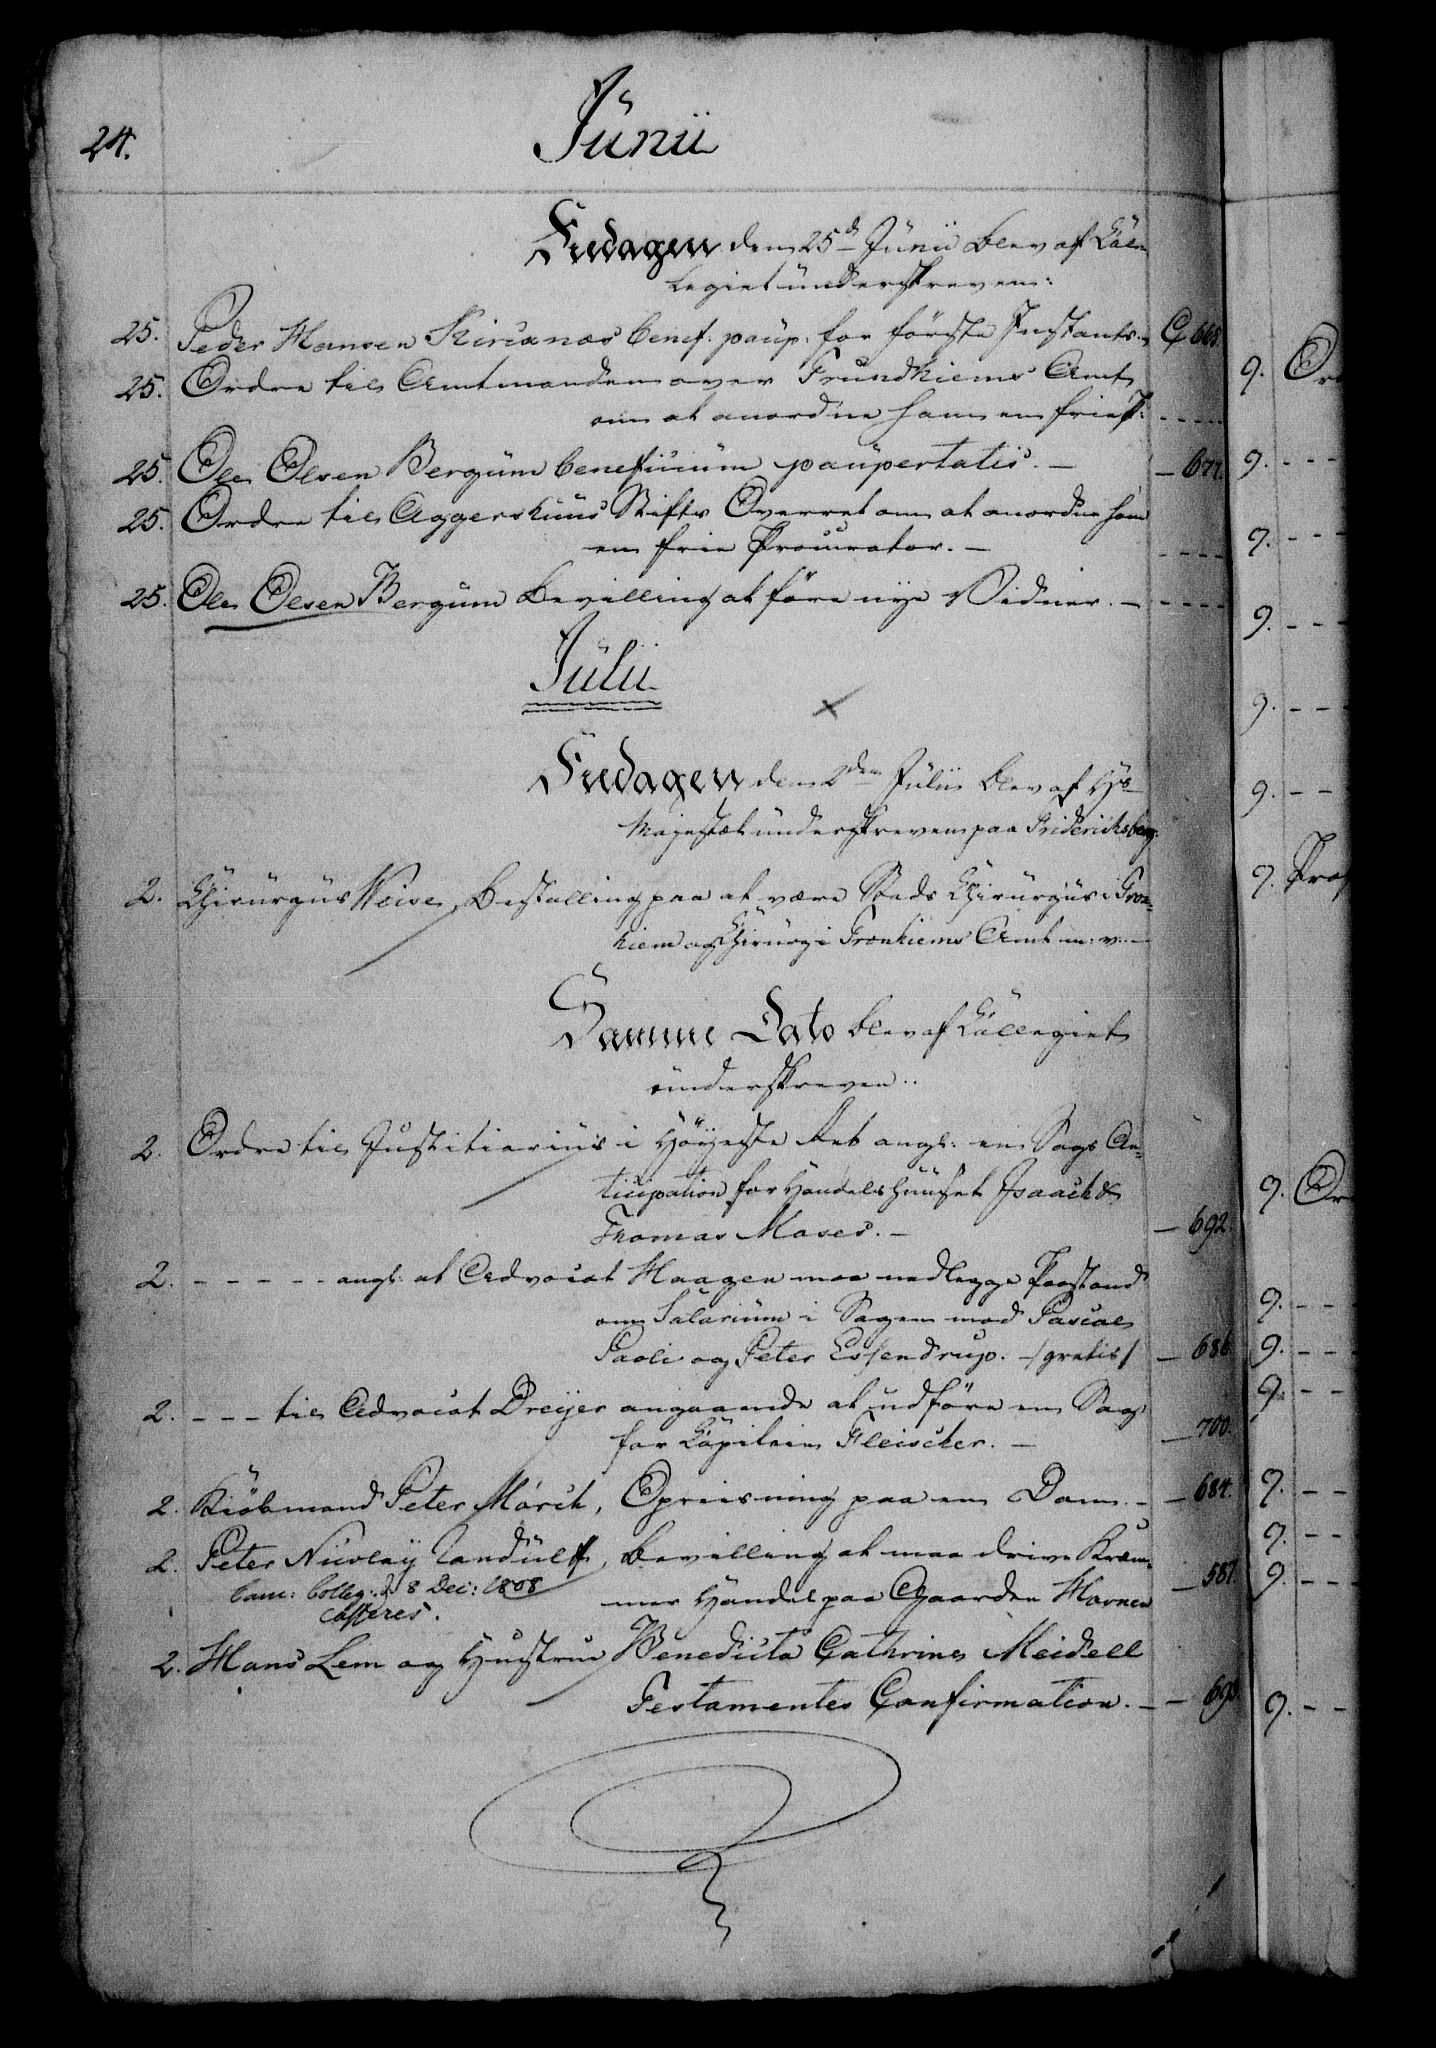 24.
Junii
Fredagen den 25d Junii blev af Col-
legiet underskreven:
25. Peder Hansen Kircknæs benef: paup: for förste Instants. C 668.
25. Ordre til Amtmanden over Trundhiems Amt
om at anordne ham en frie P: -----
25. Ole Olsen Bergum beneficium paupertatis. — — 677.
25. Ordre til Aggershuus Stifts Overret om at anordne ham
en frie Procurator. — ----
25. Ole Olsen Bergum Bevilling at före nye Vidner. — ----
Julii
Fredagen den 2den Julii blev af Hs
Majestæt underskreven paa Friderichsberg.
2. Chirurgus Weise, Bestalling paa at være Stads Chirurgus i Tron-
hiem og Chirurg i Tronhiems Amt m: v: —
Samme Dato blev af Collegiet
underskreven..
2. Ordre til Justitiarius i Höyeste Ret angl: en Sags An-
ticipation for Handelshuuset Isaach &
Thomas Moses. — — 692.
2. ----- angl: at Advocat Haagen maa nedlegge Paastand
om Salarium i Sagen mod Pascal
Paoli og Peter Essendrup. — /gratis/ — 686
2. --- til Advocat Dreyer angaaende at udföre en Sag
for Capitain Fleischer. — — 700.
2. Kiöbmand Peter Mörch, Opreisning paa en Dom. — — 684.
2. Peter Nicolay Landulf, Bevilling at maa drive Kræm-
mer Handel paa Gaarden Havnen — 587
Cam: Colleg: d 8 Dec: 1808
Casseres.
2. Hans Lem og Hustrue Benedicta Cathrine Meidell
Testamentes Confirmation. — — 693.